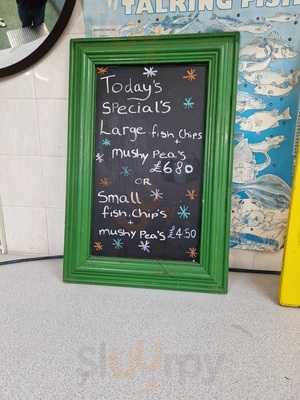 TALKING FISH
Today's
Special's
Large fish, Chips
+
mushy Pea's
£6.80
OR
Small
fish, Chip's
+
mushy Pea's £4.50
Sluurpy